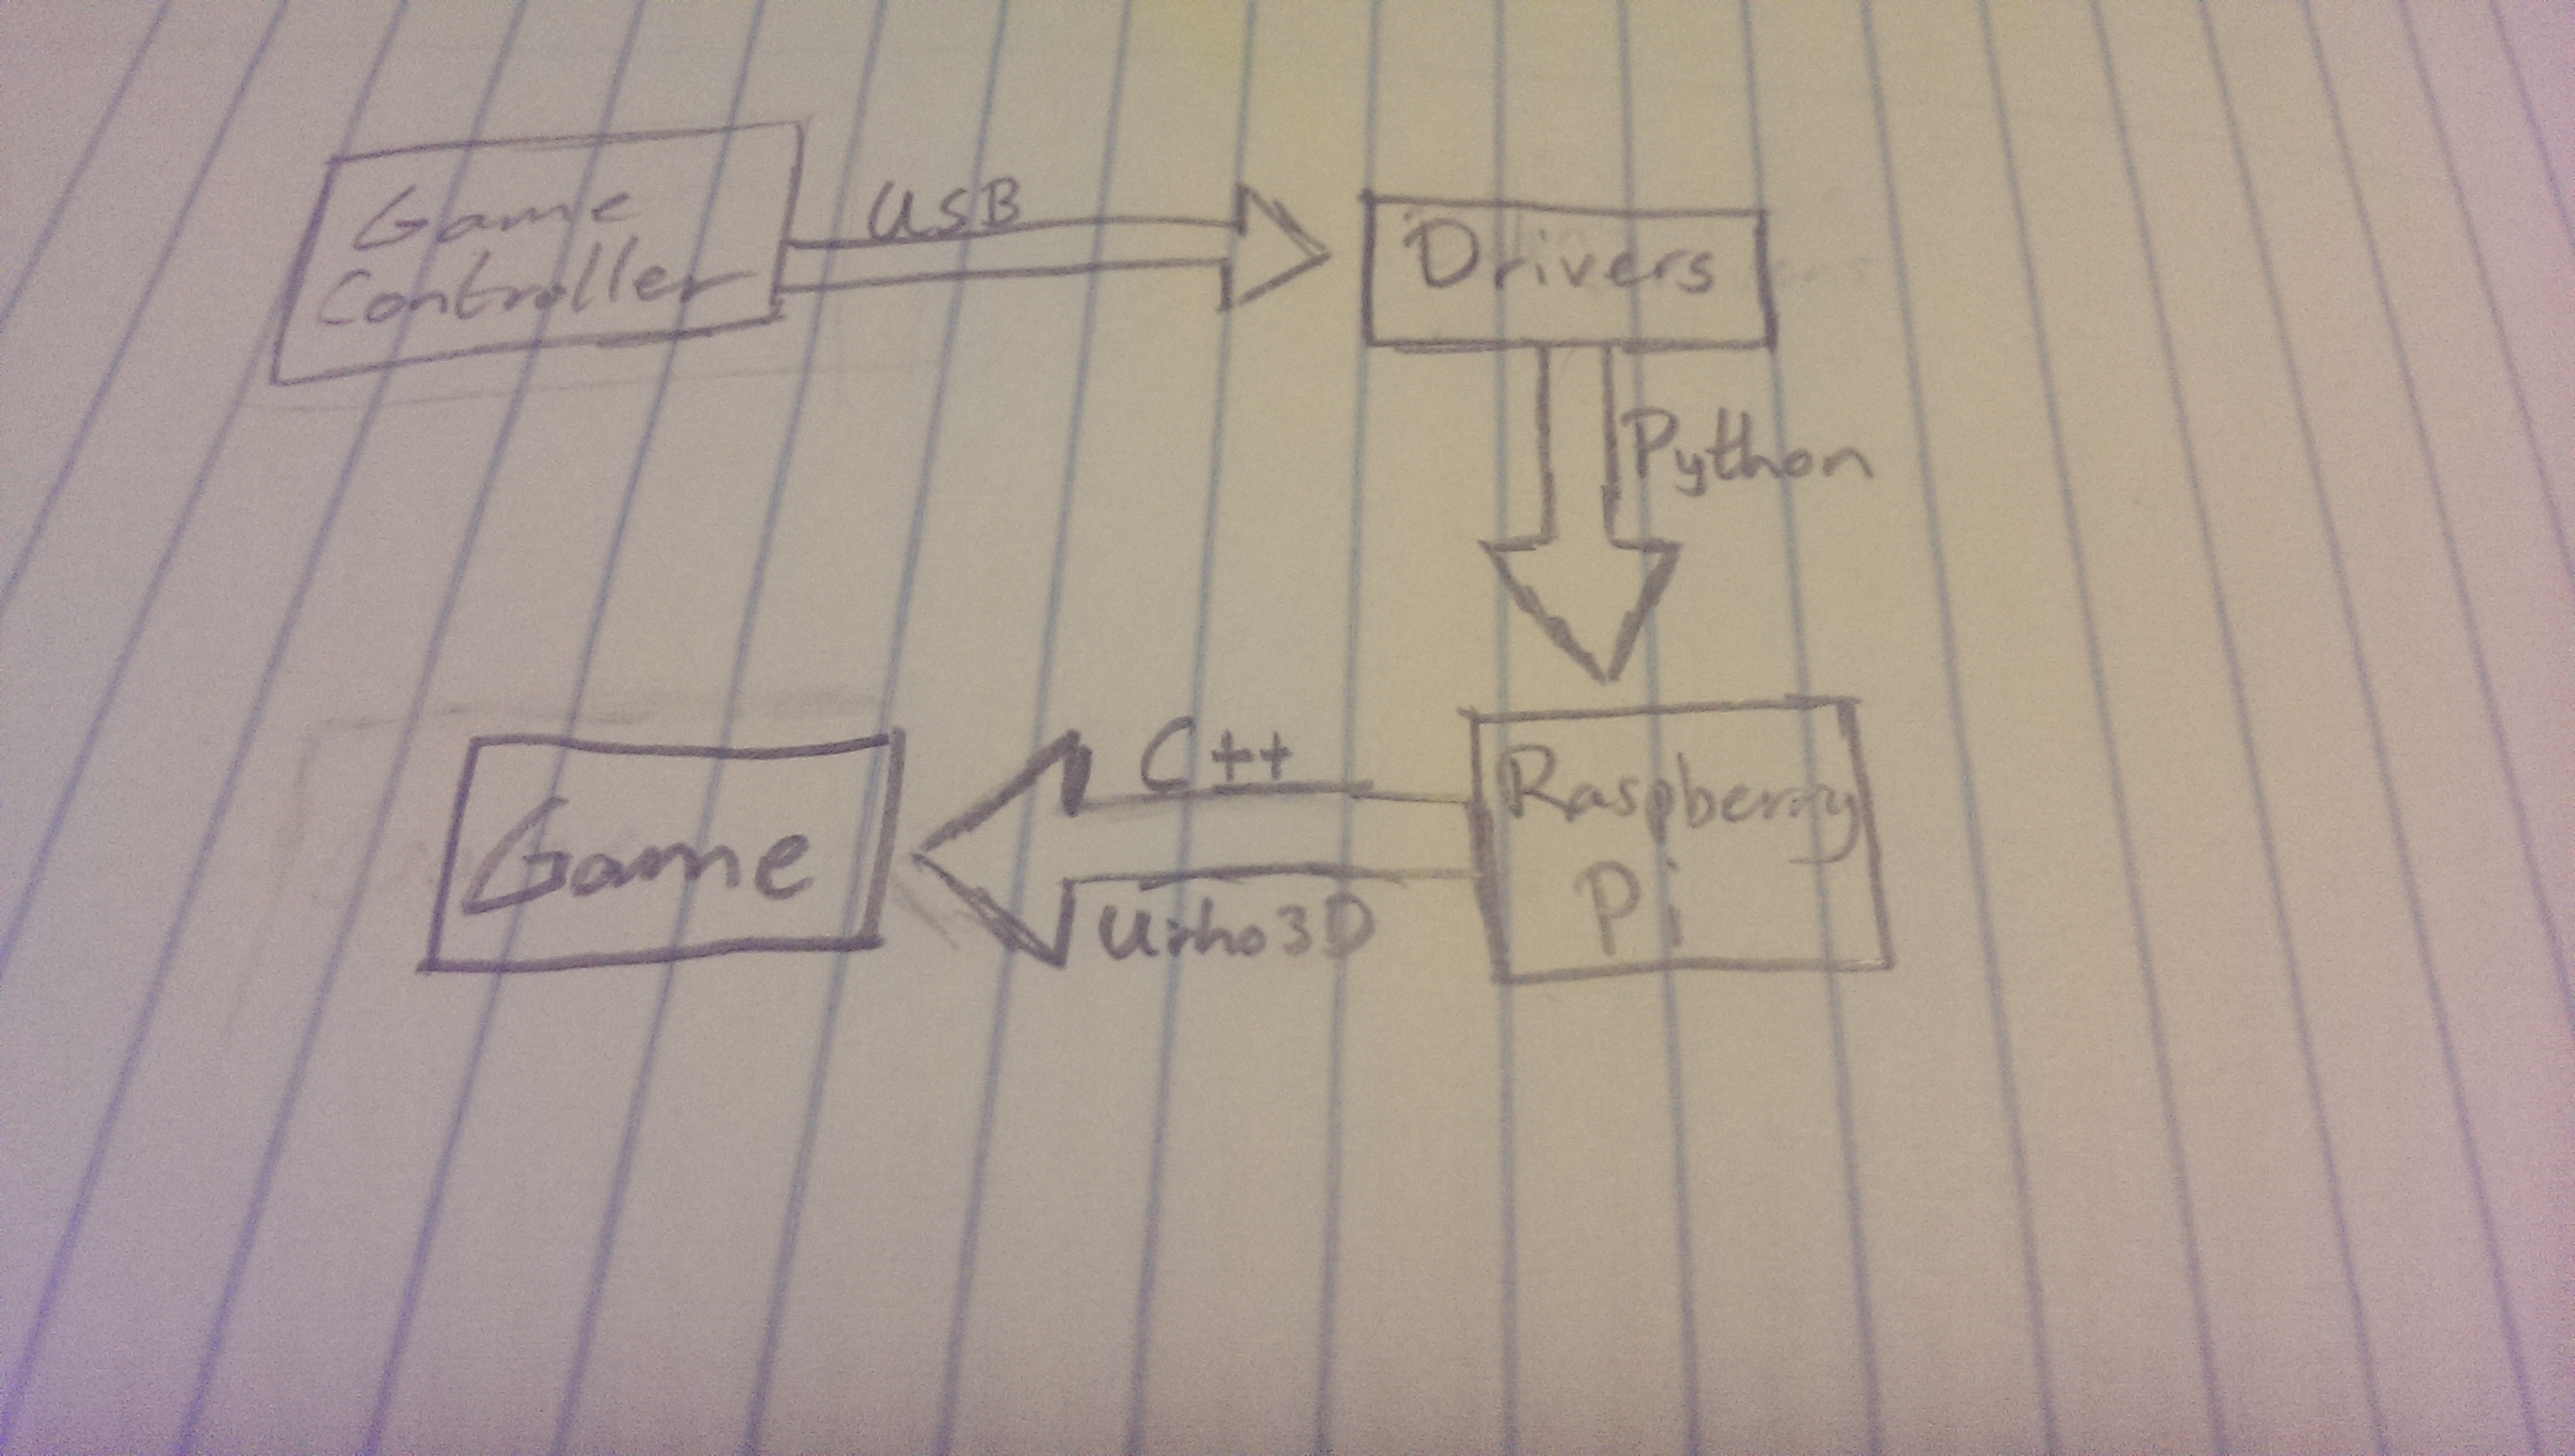 Game
Controller
USB
Drivers
Python
Raspberry
Pi
C++
Urho3D
Game